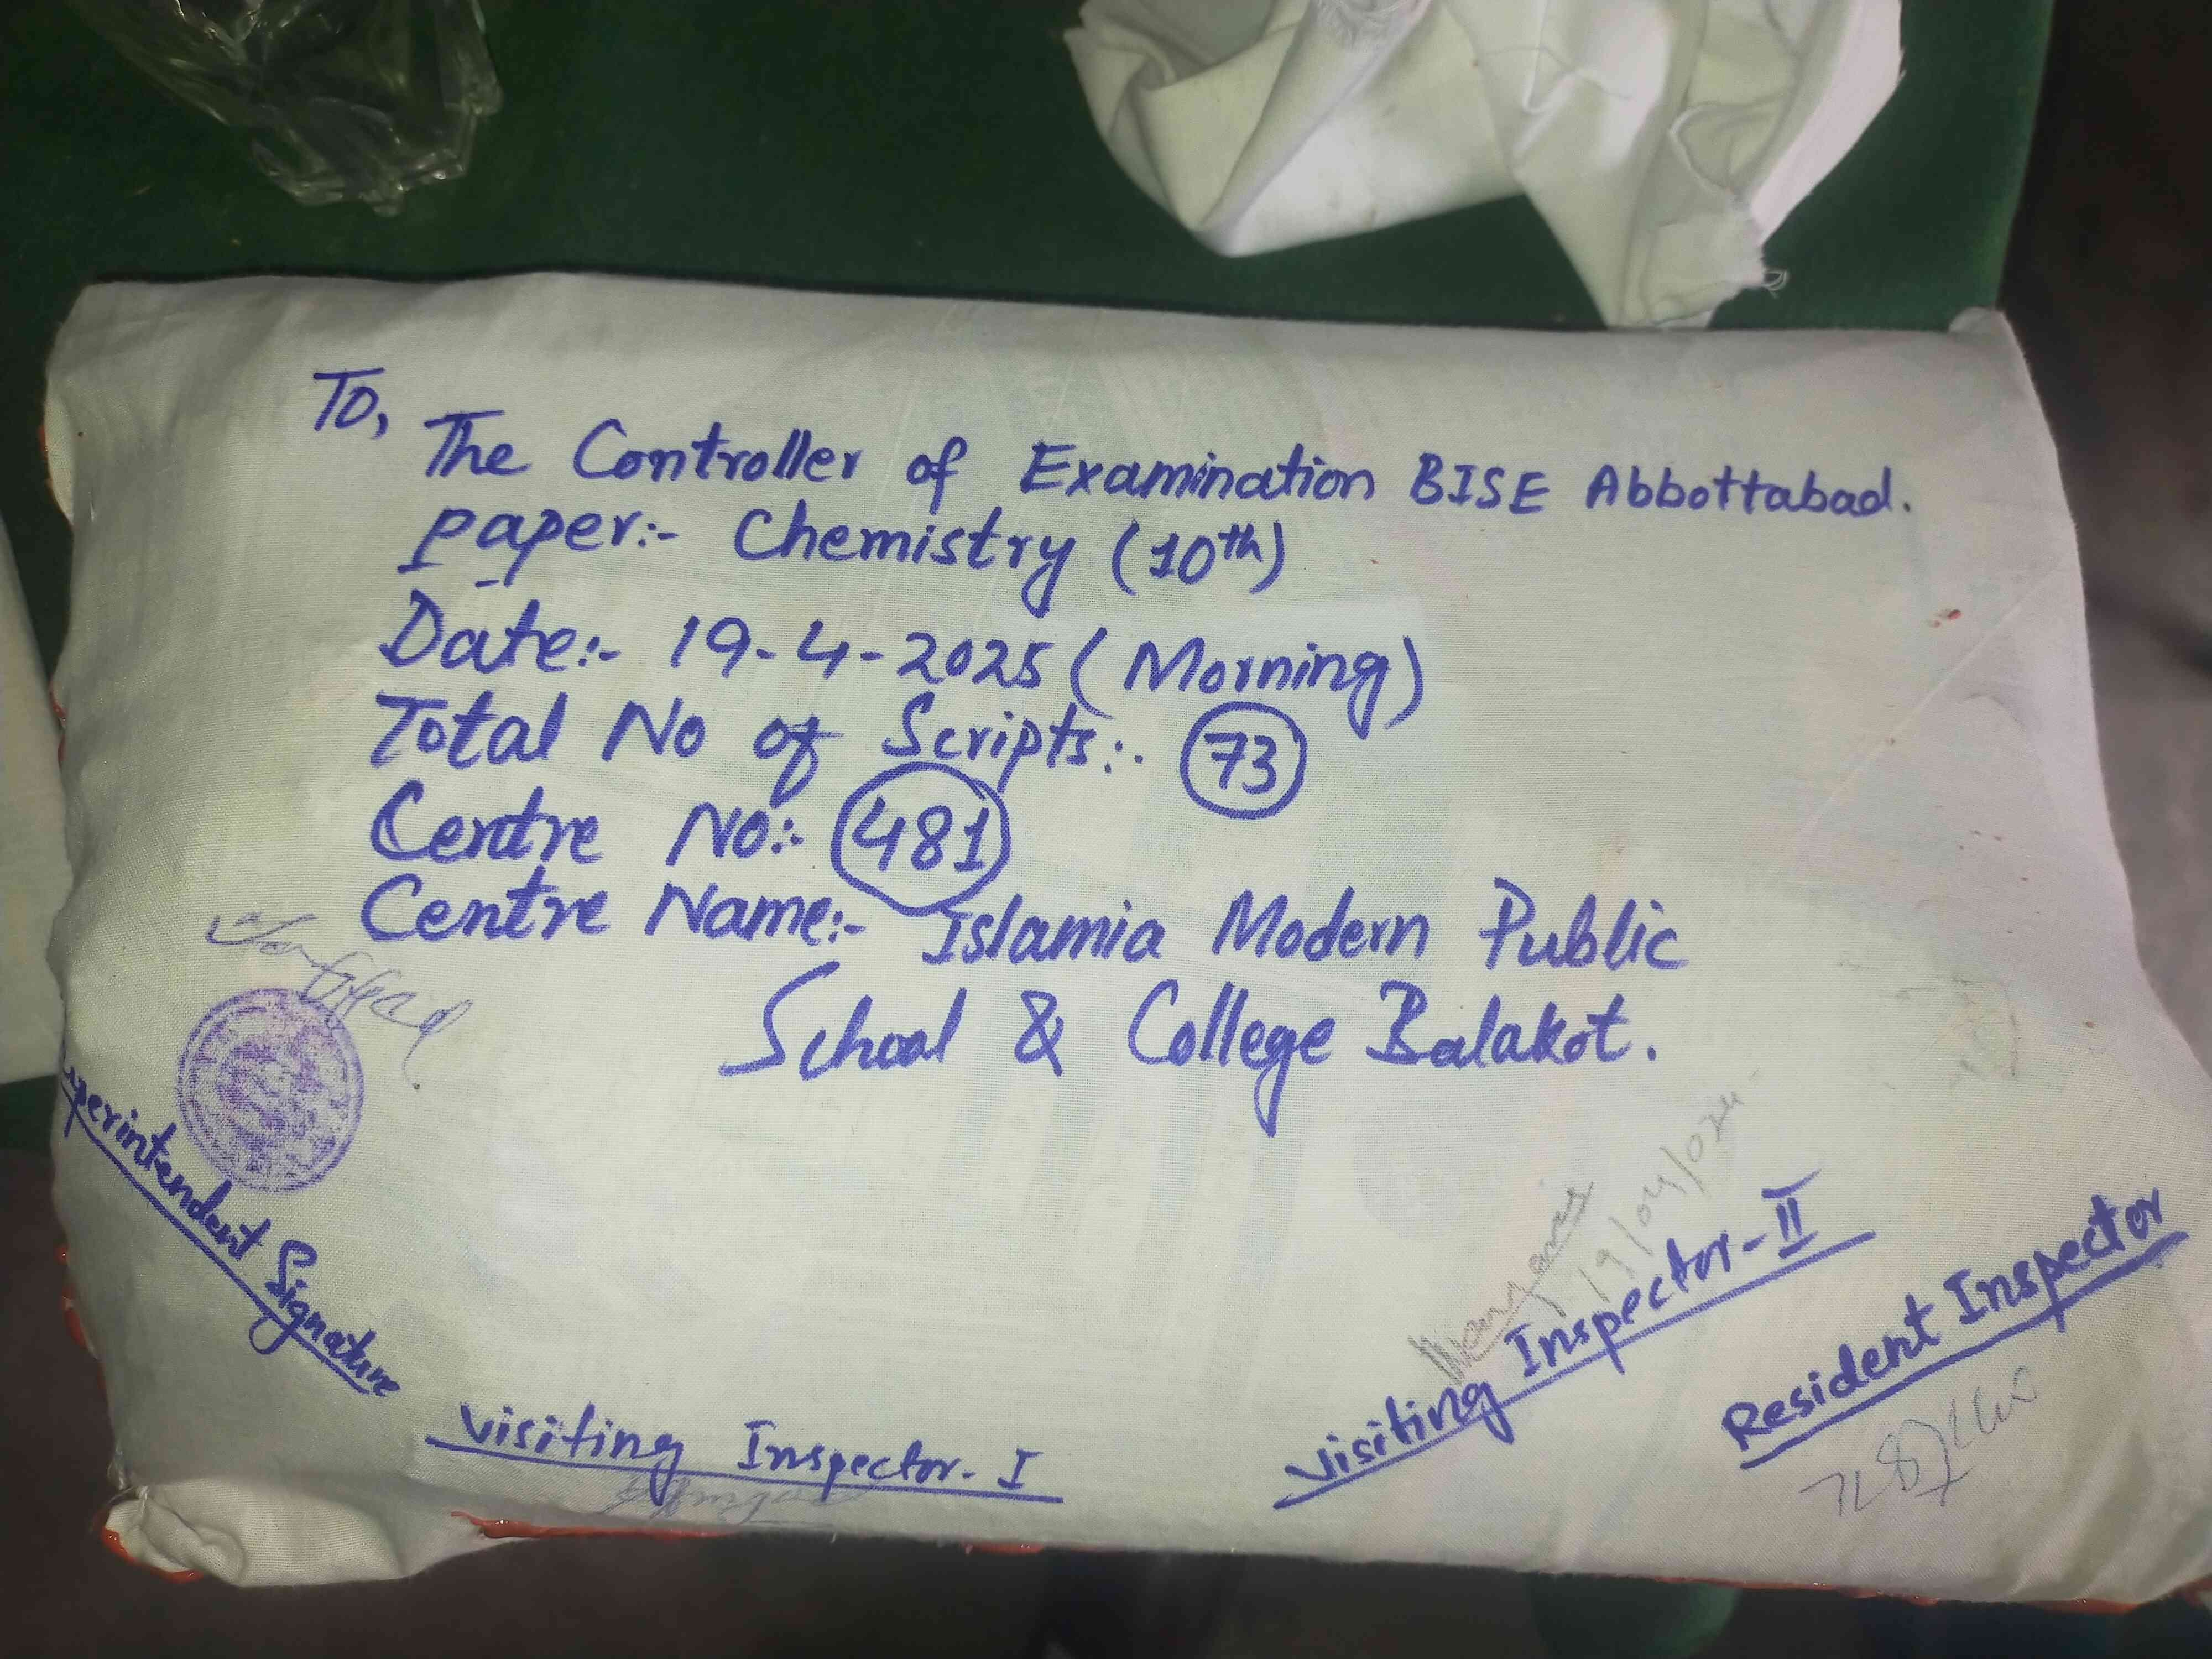 To,
The Controller of Examination BISE Abbottabad.
Paper:- Chemistry (10th)
Date:- 19-4-2025 (Morning)
Total No of Scripts:- 73
Centre No:- 481
Centre Name:- Islamia Modern Public
School & College Balakot.
Signature
Visiting Inspector-I
Visiting Inspector-II
Resident Inspector